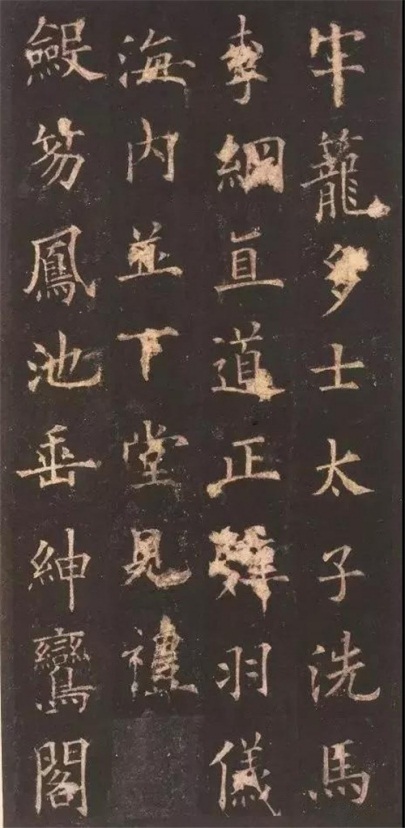 牢籠多士太子洗馬
李綱直道正羽儀
海內並下堂見禮
笏鳳池垂紳鸞閣